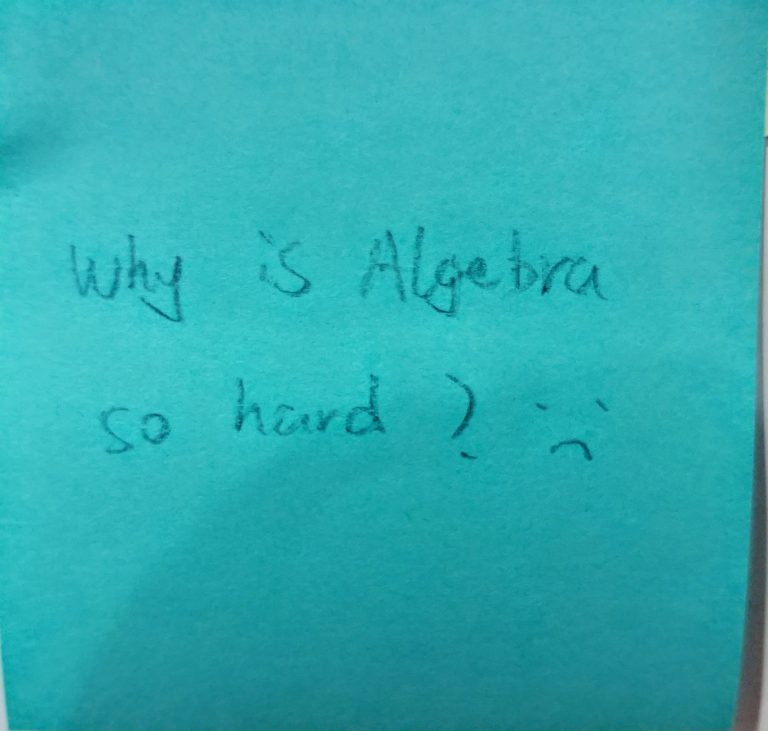 Why is Algebra
so hard ? :(